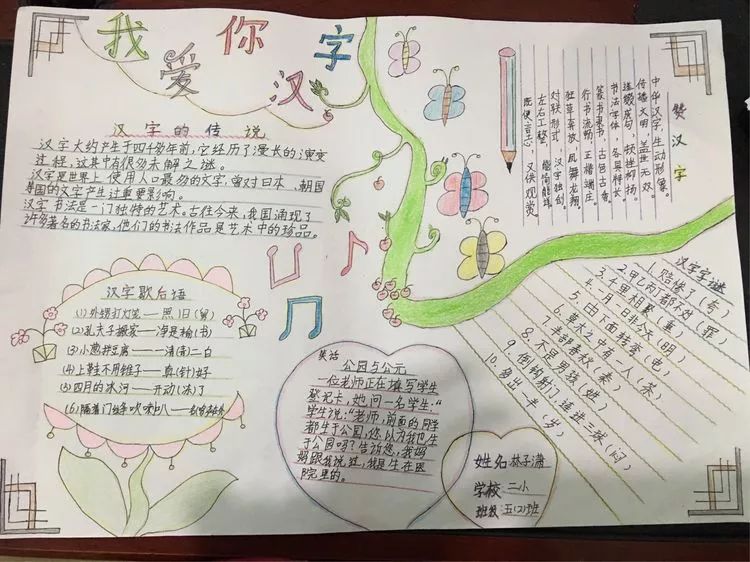 我爱你汉字
汉字的传说
汉字大约产生于四千多年前，它经历了漫长的演变
过程，这其中有很多未解之谜。
汉字是世界上使用人口最多的文字，曾对日本、朝国
等国的文字产生过重要影响。
汉字书法是一门独特的艺术。古往今来，我国涌现了
许多著名的书法家，他们的书法作品是艺术中的珍品。
赞汉字
中华汉字，生动形象。
传播文明，盖世无双。
书法字体，各具特长
篆书隶书，古色古香。
行书流畅，正楷端庄。
狂草奔放，凤舞龙翔。
对联形式，汉字独创。
左右工整
既便言志，又供观赏
汉字歇后语
(1)外甥打灯笼——照旧(舅)
(2)孔夫子搬家——净是输(书)
(3)小葱拌豆腐——一清(青)二白
(4)上鞋不用锥子——真(针)好
(5)四月的冰河——开动(冻)了
(6)隔着门缝吹喇叭
汉字字谜
1.赔惨了(夸)
2.甲乙丙丁都不对(罪)
3.千里相聚(重)
4.月日非今天(明)
5.由下面转弯(电)
6.草木之中有一人(茶)
7.半部春秋(秦)
8.不是男孩(姓)
9.倒钩射门,连进三球(闷)
10.多出一半(岁)
笑话
公园与公元
一位老师正在填写学生
登记卡,她问一名学生:"
学生说:"老师,前面的同学
都生于公园,您以为我也生
于公园吗?告诉您,我妈
妈跟我说过,我是生在医
院里的。
姓名 林子潇
学校 二小
班级 五(2)班